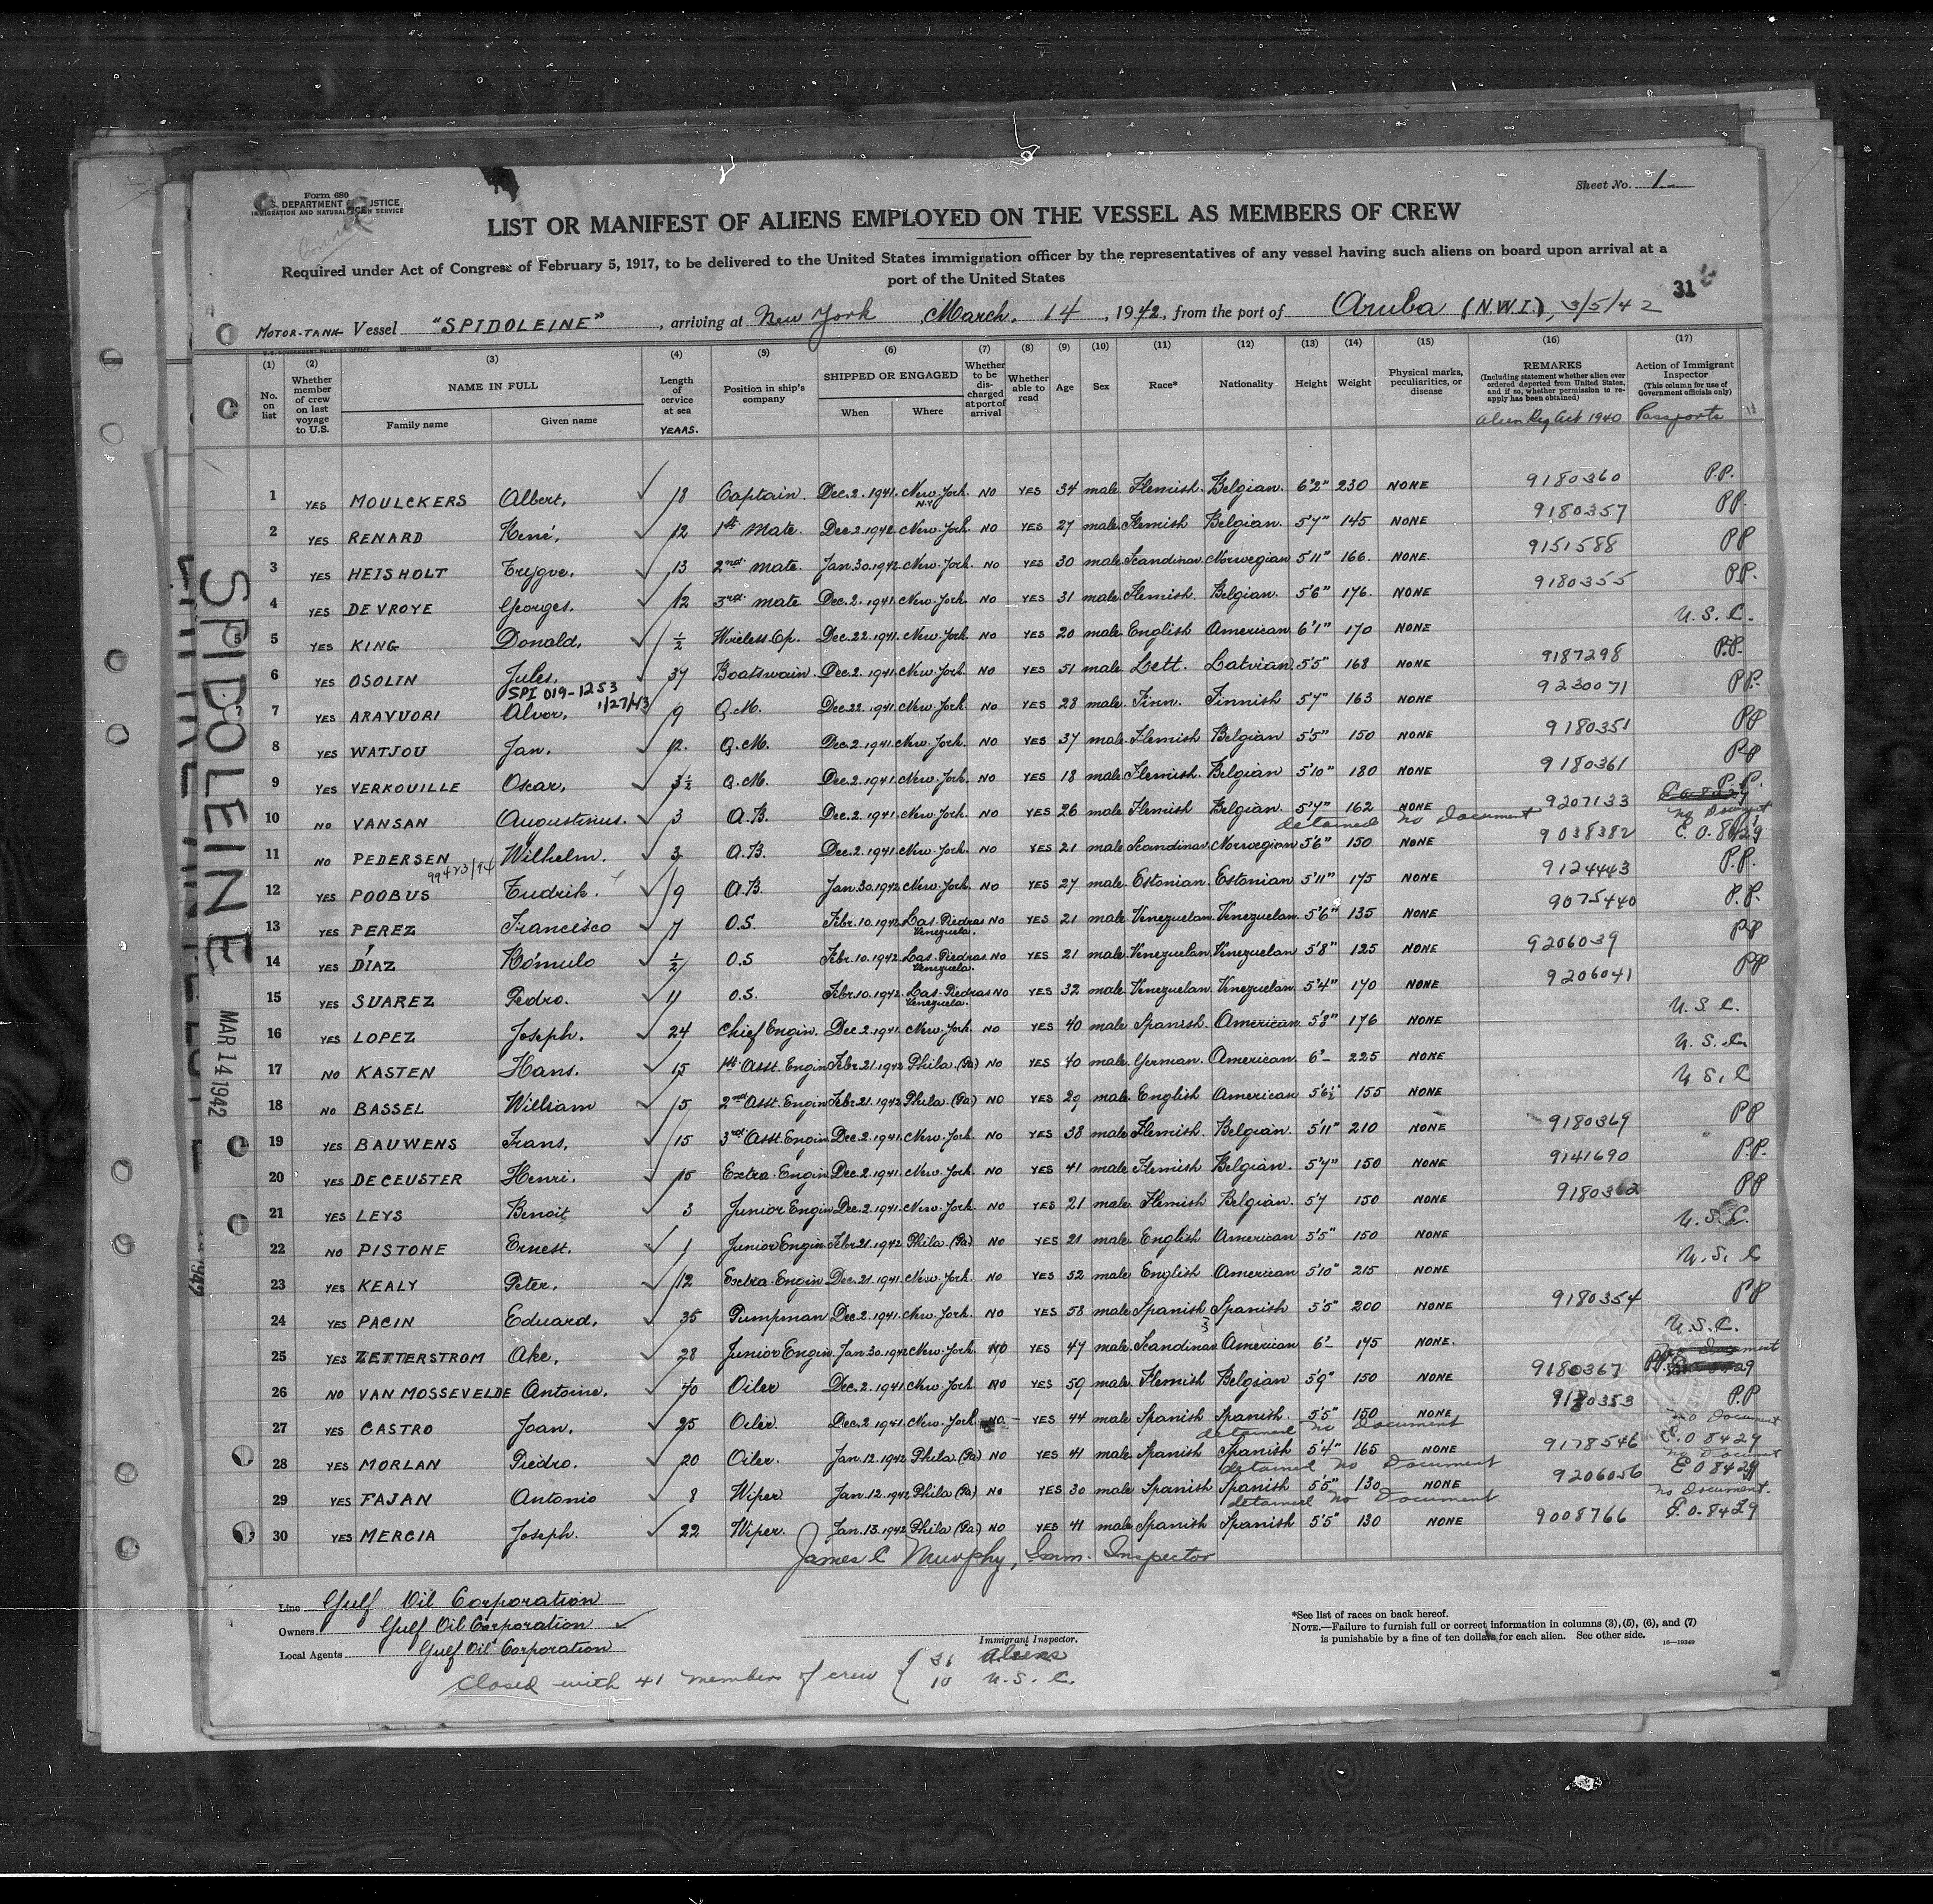 Form 680
U.S. DEPARTMENT OF JUSTICE
IMMIGRATION AND NATURALIZATION SERVICE
Sheet No. 1
LIST OR MANIFEST OF ALIENS EMPLOYED ON THE VESSEL AS MEMBERS OF CREW
Required under Act of Congress of February 5, 1917, to be delivered to the United States immigration officer by the representatives of any vessel having such aliens on board upon arrival at a
port of the United States
31
MOTOR-TANK Vessel "SPIDOLEINE", arriving at New York March, 14, 1942, from the port of Aruba (N.W.I.), 3/5/42
(1) (2) (3) (4) (5) (6) (7) (8) (9) (10) (11) (12) (13) (14) (15) (16) (17)
No. on list Whether member of crew on last voyage to U.S. NAME IN FULL Family name Given name Length of service at sea YEARS. Position in ship's company SHIPPED OR ENGAGED When Where Whether to be discharged at port of arrival Whether able to read Age Sex Race* Nationality Height Weight Physical marks, peculiarities, or disease REMARKS (Including statement whether alien ever ordered deported from United States, and if so, whether permission to reapply has been obtained) Action of Immigrant Inspector (This column for use of Government officials only)
Alien Reg Act 1940 Passports
1 YES MOULCKERS Albert, 18 Captain. Dec. 2. 1941. New-York. N.Y. NO YES 34 male Flemish. Belgian. 6'2" 230 NONE 9180360 P.P.
2 YES RENARD René, 12 1st Mate. Dec. 2. 1942. New-York. NO YES 27 male Flemish Belgian. 5'7" 145 NONE 9180357 P.P.
3 YES HEISHOLT Trygve, 13 2nd mate. Jan. 30. 1942. New-York. NO YES 30 male Scandinav. Norwegian 5'11" 166. NONE. 9151588 P.P
4 YES DE VROYE Georges, 12 3rd mate Dec. 2. 1941. New-York. NO YES 31 male Flemish. Belgian. 5'6" 176. NONE 9180355 P.P.
5 YES KING Donald, ½ Wireless Op. Dec. 22. 1941. New-York. NO YES 20 male English American 6'1" 170 NONE U.S.C.
6 YES OSOLIN Jules, 37 Boatswain Dec. 2. 1941. New-York. NO YES 51 male. Lett. Latvian 5'5" 168 NONE 9187298 P.P.
SPI 019-1253 1/27/43
7 YES ARAVUORI Alvar, 9 Q.M. Dec. 22. 1941. New-York. NO YES 28 male. Finn. Finnish 5'7" 163 NONE 9230071 P.P.
8 YES WATJOU Jan. 12. Q.M. Dec. 2. 1941. New-York. NO YES 37 male Flemish Belgian 5'5" 150 NONE 9180351 PP
9 YES VERKOUILLE Oscar, 3½ Q.M. Dec. 2. 1941. New-York. NO YES 18 male Flemish. Belgian 5'10" 180 NONE 9180361 P.P
10 NO VANSAN Augustinus. 3 A.B. Dec. 2. 1941. New-York. NO YES 26 male Flemish Belgian. 5'7" 162 NONE 9207133 P.P.
detained no Document no Document
11 NO PEDERSEN Wilhelm. 3 A.B. Dec. 2. 1941. New-York. NO YES 21 male Scandinav. Norwegian 5'6" 150 NONE 9038382 E.O. 8429
12 YES POOBUS Eudrik. 9 A.B. Jan. 30. 1942 New-York. NO YES 27 male. Estonian. Estonian 5'11" 175 NONE 9124443 P.P.
13 YES PEREZ Francisco 7 O.S. Febr. 10. 1942 Las-Piedras Venezuela. NO YES 21 male Venezuelan. Venezuelan 5'6" 135 NONE 9075440 P.P.
14 YES DÍAZ Rómulo ½ O.S Febr. 10. 1942 Las-Piedras Venezuela. NO YES 21 male Venezuelan Venezuelan 5'8" 125 NONE 9206039 PP
15 YES SUAREZ Pedro. 11 O.S. Febr. 10. 1942 Las-Piedras Venezuela. NO YES 32 male Venezuelan. Venezuelan 5'4" 170 NONE 9206041 PP
16 YES LOPEZ Joseph. 24 Chief Engin. Dec. 2. 1941. New-York. NO YES 40 male Spanish. American. 5'8" 176 NONE U.S.C.
17 NO KASTEN Hans. 15 1st Asst. Engin Febr. 21. 1942 Phila. (Pa) NO YES 40 male. German. American. 6'- 225 NONE U.S.C.
18 NO BASSEL William 5 2nd Asst. Engin Febr. 21. 1942 Phila. (Pa) NO YES 29 male. English American 5'6½ 155 NONE U.S.C
19 YES BAUWENS Frans, 15 3rd Asst. Engin Dec. 2. 1941. New-York. NO YES 38 male Flemish. Belgian. 5'11" 210 NONE 9180369 PP
20 YES DECEUSTER Henri. 15 Extra-Engin Dec. 2. 1941. New-York. NO YES 41 male. Flemish Belgian. 5'7" 150 NONE 9141690 P.P.
21 YES LEYS Benoit 3 Junior Engin Dec. 2. 1941. New-York. NO YES 21 male. Flemish Belgian. 5'7 150 NONE 9180362 PP
22 NO PISTONE Ernest. 1 Junior Engin Febr. 21. 1942 Phila. (Pa) NO YES 21 male. English American 5'5" 150 NONE U.S.C.
23 YES KEALY Peter, 12 Extra-Engin Dec. 21. 1941. New-York. NO YES 52 male. English American 5'10" 215 NONE U.S.C
24 YES PACIN Eduard, 35 Pumpman Dec. 2. 1941. New-York. NO YES 58 male Spanish Spanish 5'5" 200 NONE 9180354 PP
25 YES ZETTERSTROM Ake, 28 Junior Engin. Jan. 30. 1942 New-York. NO YES 47 male. Scandinav. American 6'- 175 NONE. U.S.C.
26 NO VAN MOSSEVELDE Antoine. 40 Oiler Dec. 2. 1941. New-York. NO YES 59 male Flemish Belgian 5'9" 150 NONE 9180367 P.P.
27 YES CASTRO Joan. 25 Oiler. Dec. 2. 1941. New-York NO YES 44 male Spanish Spanish. 5'5" 150 NONE 9180353 P.P
detained no Document no Document
28 YES MORLAN Piedro. 20 Oiler. Jan. 12. 1942 Phila. (Pa) NO YES 41 male Spanish Spanish 5'4" 165 NONE 9178546 E.O 8429
detained no Document no Document
29 YES FAJAN Antonio 8 Wiper Jan. 12. 1942 Phila (Pa) NO YES 30 male Spanish Spanish 5'5" 130 NONE 9206056 E O 8429
detained no Document no Document.
30 YES MERCIA Joseph. 22 Wiper. Jan. 13. 1942 Phila. (Pa.) NO YES 41 male Spanish Spanish 5'5" 130 NONE 9008766 E.O-8429
James C Murphy, Imm. Inspector
Line Gulf Oil Corporation
Owners Gulf Oil Corporation
Local Agents Gulf Oil Corporation
Immigrant Inspector.
Closed with 41 members of crew { 31 Aliens
10 U.S.C.
*See list of races on back hereof.
NOTE.—Failure to furnish full or correct information in columns (3), (5), (6), and (7)
is punishable by a fine of ten dollars for each alien. See other side.
16—19349
SPIDOLEINE
MAR 14 1942